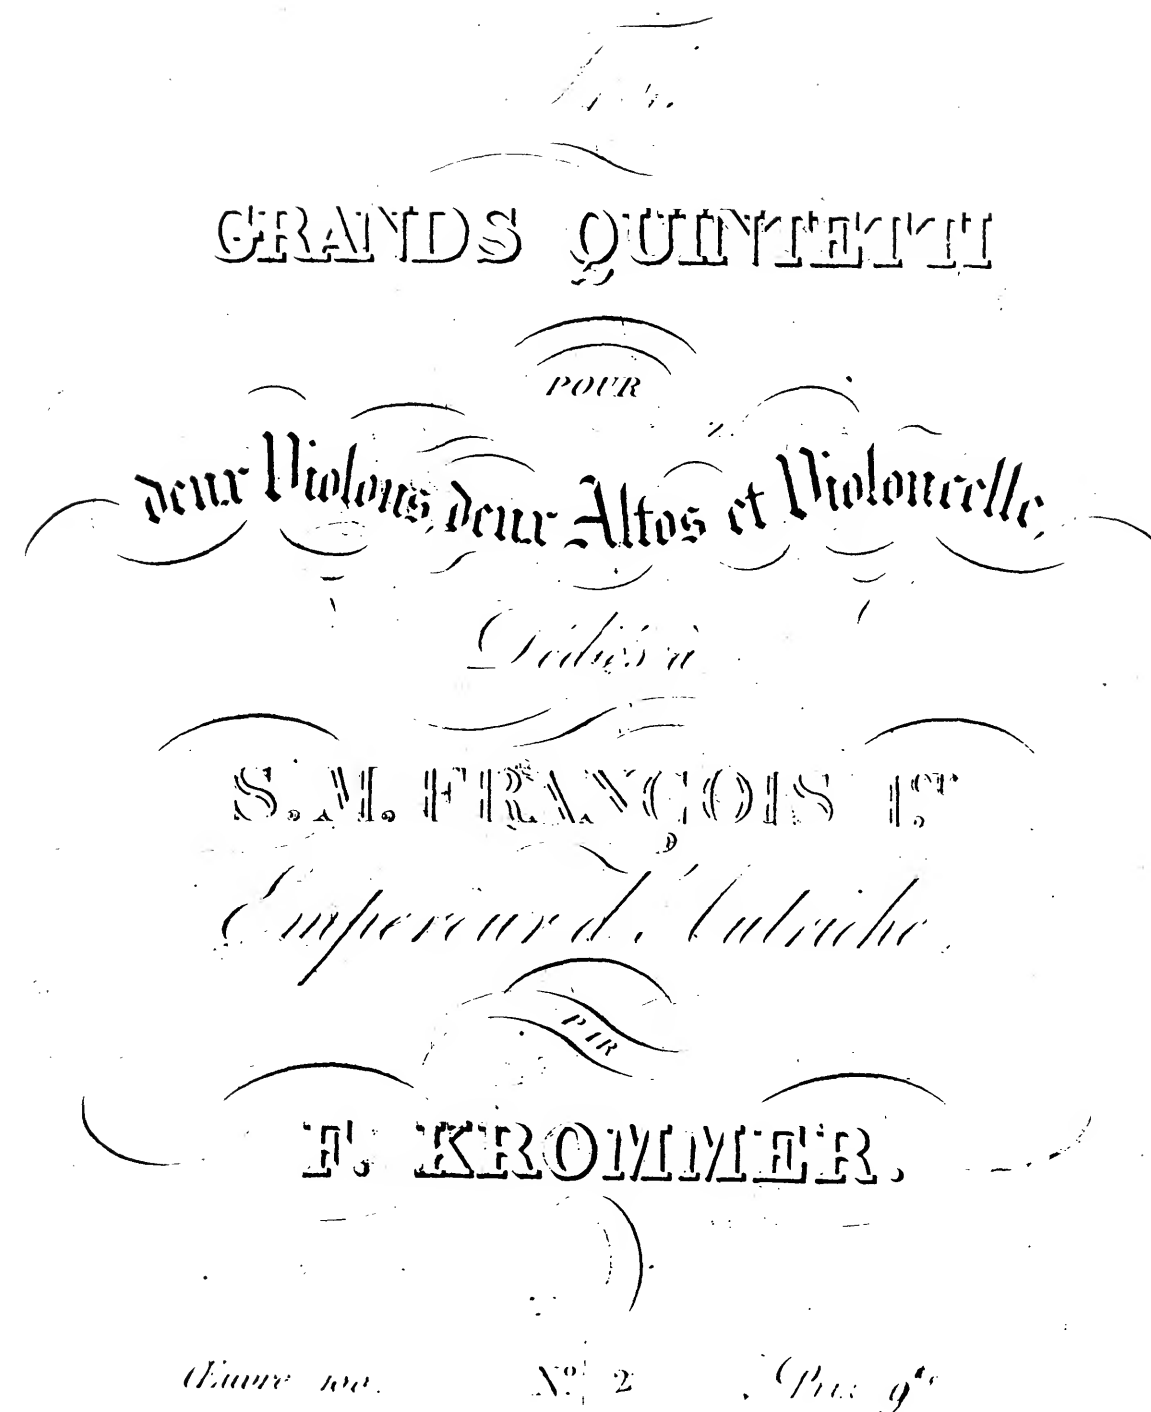 GRANDS QUINTETTI
POUR
deux Violons, deux Altos et Violoncelle,
Dédiés à
S. M. FRANÇOIS I.ER
Empereur d'Autriche,
PAR
F. KROMMER.
Œuvre 100. N.º 2 Prix 9